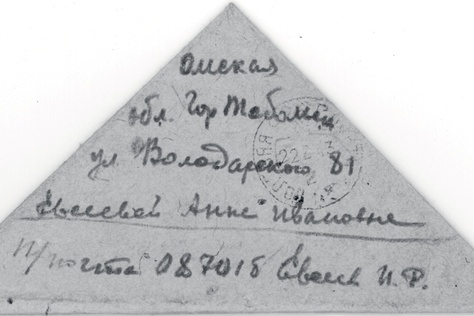 Омская
обл. Гор Тобольск
ул Володарского 81
Евсеевой Анне Ивановне
П/почта 087016 Евсеев И.Р.